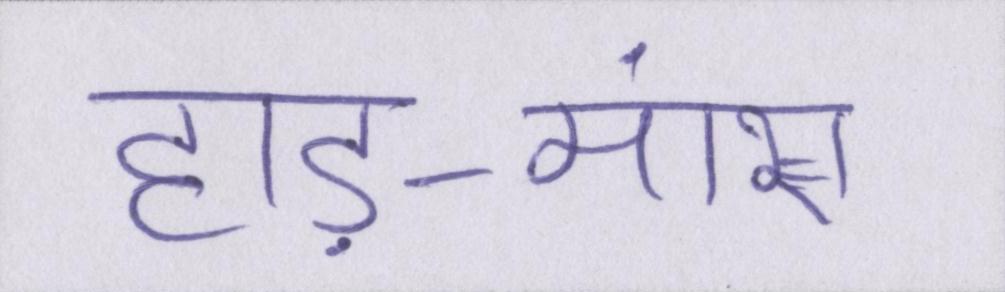 हाड़-मांस